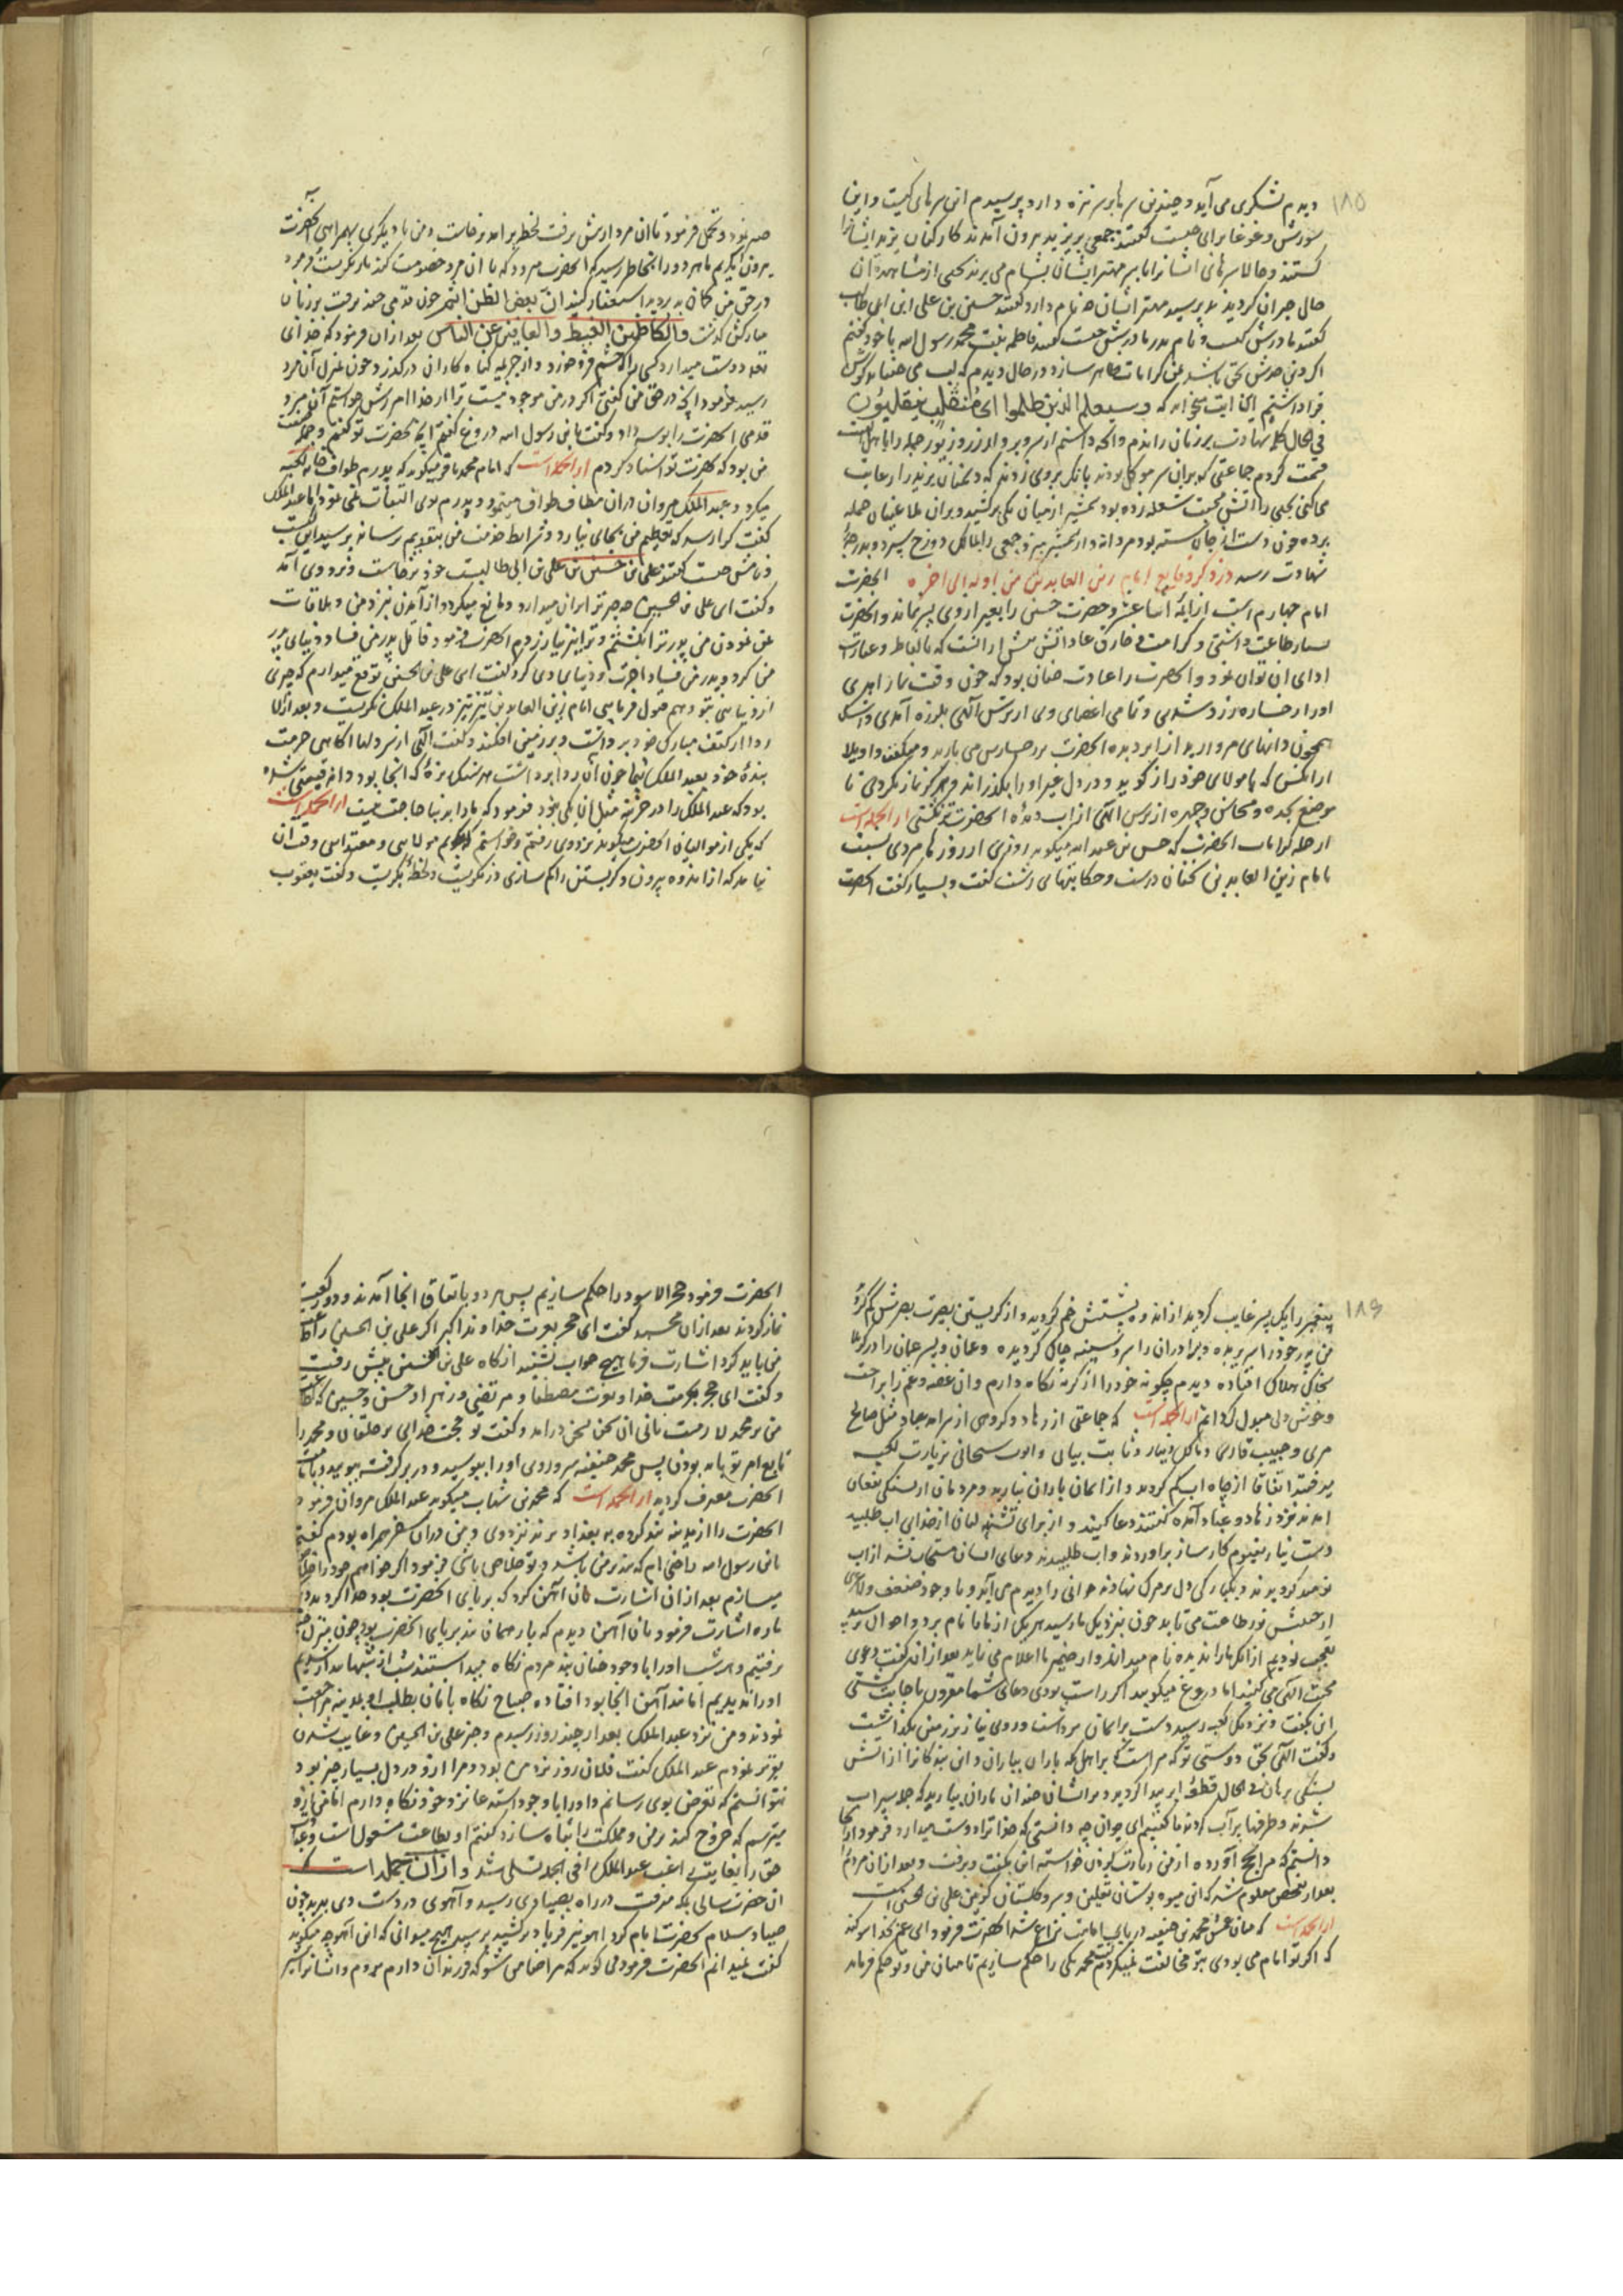 ۱۸۵
دیدم لشکری می آید و چندین سر بر سر نیزه دارد پرسیدم این سرهای کیست و این
شورش و غوغا برای چیست گفتند جمعی بر یزید بیرون آمدند کارکنان یزید ایشانرا
کشتند و حالا سرهای ایشانرا با سر مهتر ایشان بشام می برند یحیی از مشاهده آن
حال حیران گردید پرسید مهتر ایشان چه نام دارد گفتند حسین بن علی ابن ابی طالب
گفتند مادرش کیست و نام پدر مادرش چیست گفتند فاطمه بنت محمد رسول الله با خود گفتم
اگر دین جدش بحق باشد کرامات ظاهر سازد در حال دیدم که لب می جنباند گوش
فرا داشتیم این آیت میخواند که وسیعلم الذین ظلموا ای منقلب ینقلبون
فی الحال کلمه شهادت بر زبان راندم و آنچه داشتم از سر و بر و از زر و زیور جمله را با اهل بیت
قسمت کردم جماعتی که بر آن سر موکل بودند بانگ بر وی زدند که دشمنان یزید را رعایت
می کنی یحیی را آتش محبت شعله زده بود شمشیر از میان یکی برکشید و بر آن طاغیان حمله
برده چون دست از جان شسته بود مردانه وار شمشیر میزد جمعی را بمالک دوزخ سپرد و بدرجه
شهادت رسید در ذکر وقایع امام زین العابدین من اوله الی آخره آنحضرت
امام چهارم است از ائمه اثنا عشر و حضرت حسین را بغیر از وی پسر نماند و آنحضرت
بسیار طاعت داشتی و کرامت و خارق عاداتش بیش از آنست که بالفاظ و عبارت
ادای آن توان نمود و آنحضرت را عادت چنان بود که چون وقت نماز آمدی
او را رخساره زرد شدی و تمامی اعضای وی از ترس الهی بلرزه آمدی و اشک
همچون دانهای مروارید از ابر دیده آنحضرت بر رخسارش می بارید و میگفت واویلا
از آنکس که با مولای خود راز گوید و در دل غیر او را بگذراند و هرگز نماز نکردی تا
موضع سجده و محاسن و چهره از ترس الهی از آب دیده آنحضرت تر نگشتی از آنجمله است
از جمله کرامات آنحضرت که حسن بن عبد الله میگوید روزی از روزها مردی نسبت
بامام زین العابدین سخنان درشت و حکایتهای زشت گفت و بسیار گفت آنحضرت
صبر نمود و تحمل فرمود تا آن مرد از پیش برفت لحظه برآمد برخاست و من با دیگری بهمراهی آنحضرت
بیرون آمدیم ما هر دو را بخاطر رسید که آنحضرت میرود که با آن مرد خصومت کند باز نگریست فرمود
در حق من گمان بد بردید استغفار کنید ان بعض الظن اثم چون قدمی چند برفت بر زبان
مبارکش گذشت والکاظمین الغیظ والعافین عن الناس بعد از آن فرمود که خدای
بنده دوست میدارد کسی را که خشم فرو خورد و از جریمه گناه کاران درگذرد چون بمنزل آن مرد
رسید فرمود آنچه در حق من گفتی اگر در من موجود نیست ترا از خدا آمرزش خواستم آن مرد
قدمی آنحضرت را بوسه داد و گفت یابن رسول الله دروغ گفتم آنچه بحضرت تو گفتم و جمله صفت
من بود که بحضرت تو اسناد کردم از آنجمله است که امام محمد باقر میگوید که پدرم طواف خانه کعبه
میکرد و عبد الملک مروان در آن مطاف طواف مینمود و پدرم بوی التفات نمی نمود اما عبد الملک
گفت کرا رسد که تعظیم من بجای نیارد و شرایط خدمت من بتقدیم نرساند پرسید این کیست
و نامش چیست گفتند علی ابن حسین بن علی بن ابی طالبست خود برخاست و نزد وی آمد
و گفت ای علی بن الحسین چه چیز ترا بر آن میدارد و مانع میگردد از آمدن نزد من و ملاقات
من نمودن من پدر ترا نکشتم و ترا نیز نیازردم آنحضرت فرمود قاتل پدر من فساد دنیای پدر
من کرد و پدر من فساد آخرت و دنیای وی کرد گفت ای علی بن الحسین توقع میدارم که چیزی
از دنیا من بتو دهم قبول فرمایی امام زین العابدین تیز تیز در عبد الملک نگریست و بعد از آن
ردا از کتف مبارک خود برداشت و بر زمین افکند و گفت الهی از سر دلها آگاهی حرمت
بنده خود بعبد الملک بنما چون آن ردا برداشت هر سنگ ریزه که آنجا بود دانه قیمتی شده
بود که عبد الملک را در خزینه مثل آن یکی نبود فرمود که ما را بدنیا حاجت نیست از آنجمله است
که یکی از موالیان آنحضرت میگوید نزد وی رفتم و خواستم که بگویم مولایی و مقتدایی وقت آن
نیامد که از اندوه بیرون و گریستن را کم سازی در من نگریست و لحظه بگریست و گفت یعقوب
۱۸۶
پیغمبر را یک پسر غایب گردید از اندوه پشتش خم گردید و از گریستن بصرت بصرش کم گردید
من پدر خود را سر بریده و برادران را سر و سینه چاک گردیده و عمان و پسر عمان را در کربلا
بخاک هلاک افتاده دیدم چگونه خود را از گریه نگاه دارم و آن غصه و غم را براحت
و خوش دلی مبدل گردانم از آنجمله است که جماعتی از زهاد و گروهی از عباد مثل صالح
مری و حبیب فارسی و مالک دینار و ثابت بنانی و ایوب سجستانی بزیارت کعبه
میرفتند اتفاقا از چاه آب کم گردید و از آسمان باران نبارید و مردمان از تشنگی بفغان
آمدند نزد زهاد و عباد آمده گفتند دعا کنید و از برای تشنه لبان از خدای آب طلبید
دست نیاز بقیوم کارساز برآوردند و آب طلبیدند دعای ایشان مستجاب نشد از آب
نومید گردیدند و بیکبارگی دل بر مرگ نهادند جوانی را دیدم می آید و با وجود ضعف و لاغری
از جبینش نور طاعت می تابد چون بنزدیک ما رسید هر یک از ما را نام برد و احوال پرسید
تعجب نمودیم از آنکه ما را ندیده نام میداند و از ضمیر ما اعلام می نماید بعد از آن گفت دعوی
محبت الهی می کنید اما دروغ میگویید اگر راست بودی دعای شما مقرون باجابت گشتی
این بگفت و نزدیک کعبه رسید دست بر آسمان برداشت و روی نیاز بر زمین بگذاشت
و گفت الهی بحق دوستی تو که مراست که براهل مکه باران بباران و این بندگانرا از آتش
تشنگی برهان فی الحال قطعه ابر پیدا گردید و بر ایشان چندان باران ببارید که جمله سیراب
شدند و ظرفها پر آب کردند ما گفتیم ای جوان چه دانستی که خدا ترا دوست میدارد فرمود از آنجا
دانستم که مرا بحج آورده از من زیارت کردن خواسته این بگفت و برفت و بعد از آن مردم
بعد از تفحص معلوم شد که این میوه بوستان ثقلین و سرو گلستان کونین علی بن الحسین است
از آنجمله است که میان عمش محمد بن حنیفه در باب امامت نزاع شد آنحضرت فرمود ای عم بخدا سوگند
که اگر تو امام می بودی بتو مخالفت نمیکردم محمد گفت یکی را حکم سازیم تا میان من و تو حکم فرماید
آنحضرت فرمود حجر الاسود را حکم سازیم پس هر دو باتفاق آنجا آمدند و دو رکعت
نماز کردند بعد از آن محمد گفت ای حجر بعزت خداوند اکبر اگر علی بن الحسین را اطاعت
من باید کرد اشارت فرما هیچ جواب نشنید آنگاه علی بن الحسین پیش رفت
و گفت ای حجر بحرمت خدا و نبوت مصطفا و مرتضی و زهرا و حسن و حسین که اطاعت
من بر محمد لازمست یا نی آن سخن بسخن درآمد و گفت تو حجت خدایی بر خلقان و محمد را
تابع امر تو باید بودن پس محمد حنیفه سر و روی او را ببوسید و در بر گرفته ببویید و بامامت
آنحضرت معترف گردید از آنجمله است که محمد بن شهاب میگوید عبد الملک مروان فرمود
آنحضرت را از مدینه بند کرده به بغداد برند نزد وی و من در آن سفر همراه بودم گفتم
یابن رسول الله راضی ام که بند بر من باشد و تو خلاص باشی فرمود اگر خواهم خود را خلاص
میسازم بعد از آن اشارت بآن آهن کرد که بر پای آنحضرت بود جدا گردید دیگر
باره اشارت فرمود بآن آهن دیدم که باز همان بند بر پای آنحضرت بود چون بمنزل
برفتیم و هر شب او را با وجود چنان بند مردم نگاه میداشتند شب از شبها بیدار شدیم
او را ندیدیم اما بند آهن آنجا بود افتاده صباح نگاه بانان بطلب او بمدینه مراجعت
نمودند و من نزد عبد الملک بعد از چند روز رسیدم و خبر علی بن الحسین و غایب شدن
بوی نمودم عبد الملک گفت فلان روز نزد من بود و مرا از و در دل بسیار چیز بود
نتوانستم که تعرض بوی رسانم و او را با وجود استدعا نزد خود نگاه دارم اما من ازو
میترسم که خروج کند بر من و مملکت را تباه سازد گفتم او بطاعت مشغول است و عبادت
حق را بغایت راغب عبد الملک را فی الجمله تسلی شد و از آن جمله است که
آن حضرت سالی بمکه میرفت در راه بصیادی رسید و آهوی در دست وی بدید چون
صیاد سلام بحضرت امام کرد آهو نیز فریاد برکشید پرسید هیچ میدانی که این آهو چه میگوید
گفت نمیدانم آنحضرت فرمود می گوید که مرا ضامن شو که فرزندان دارم بروم و ایشانرا شیر